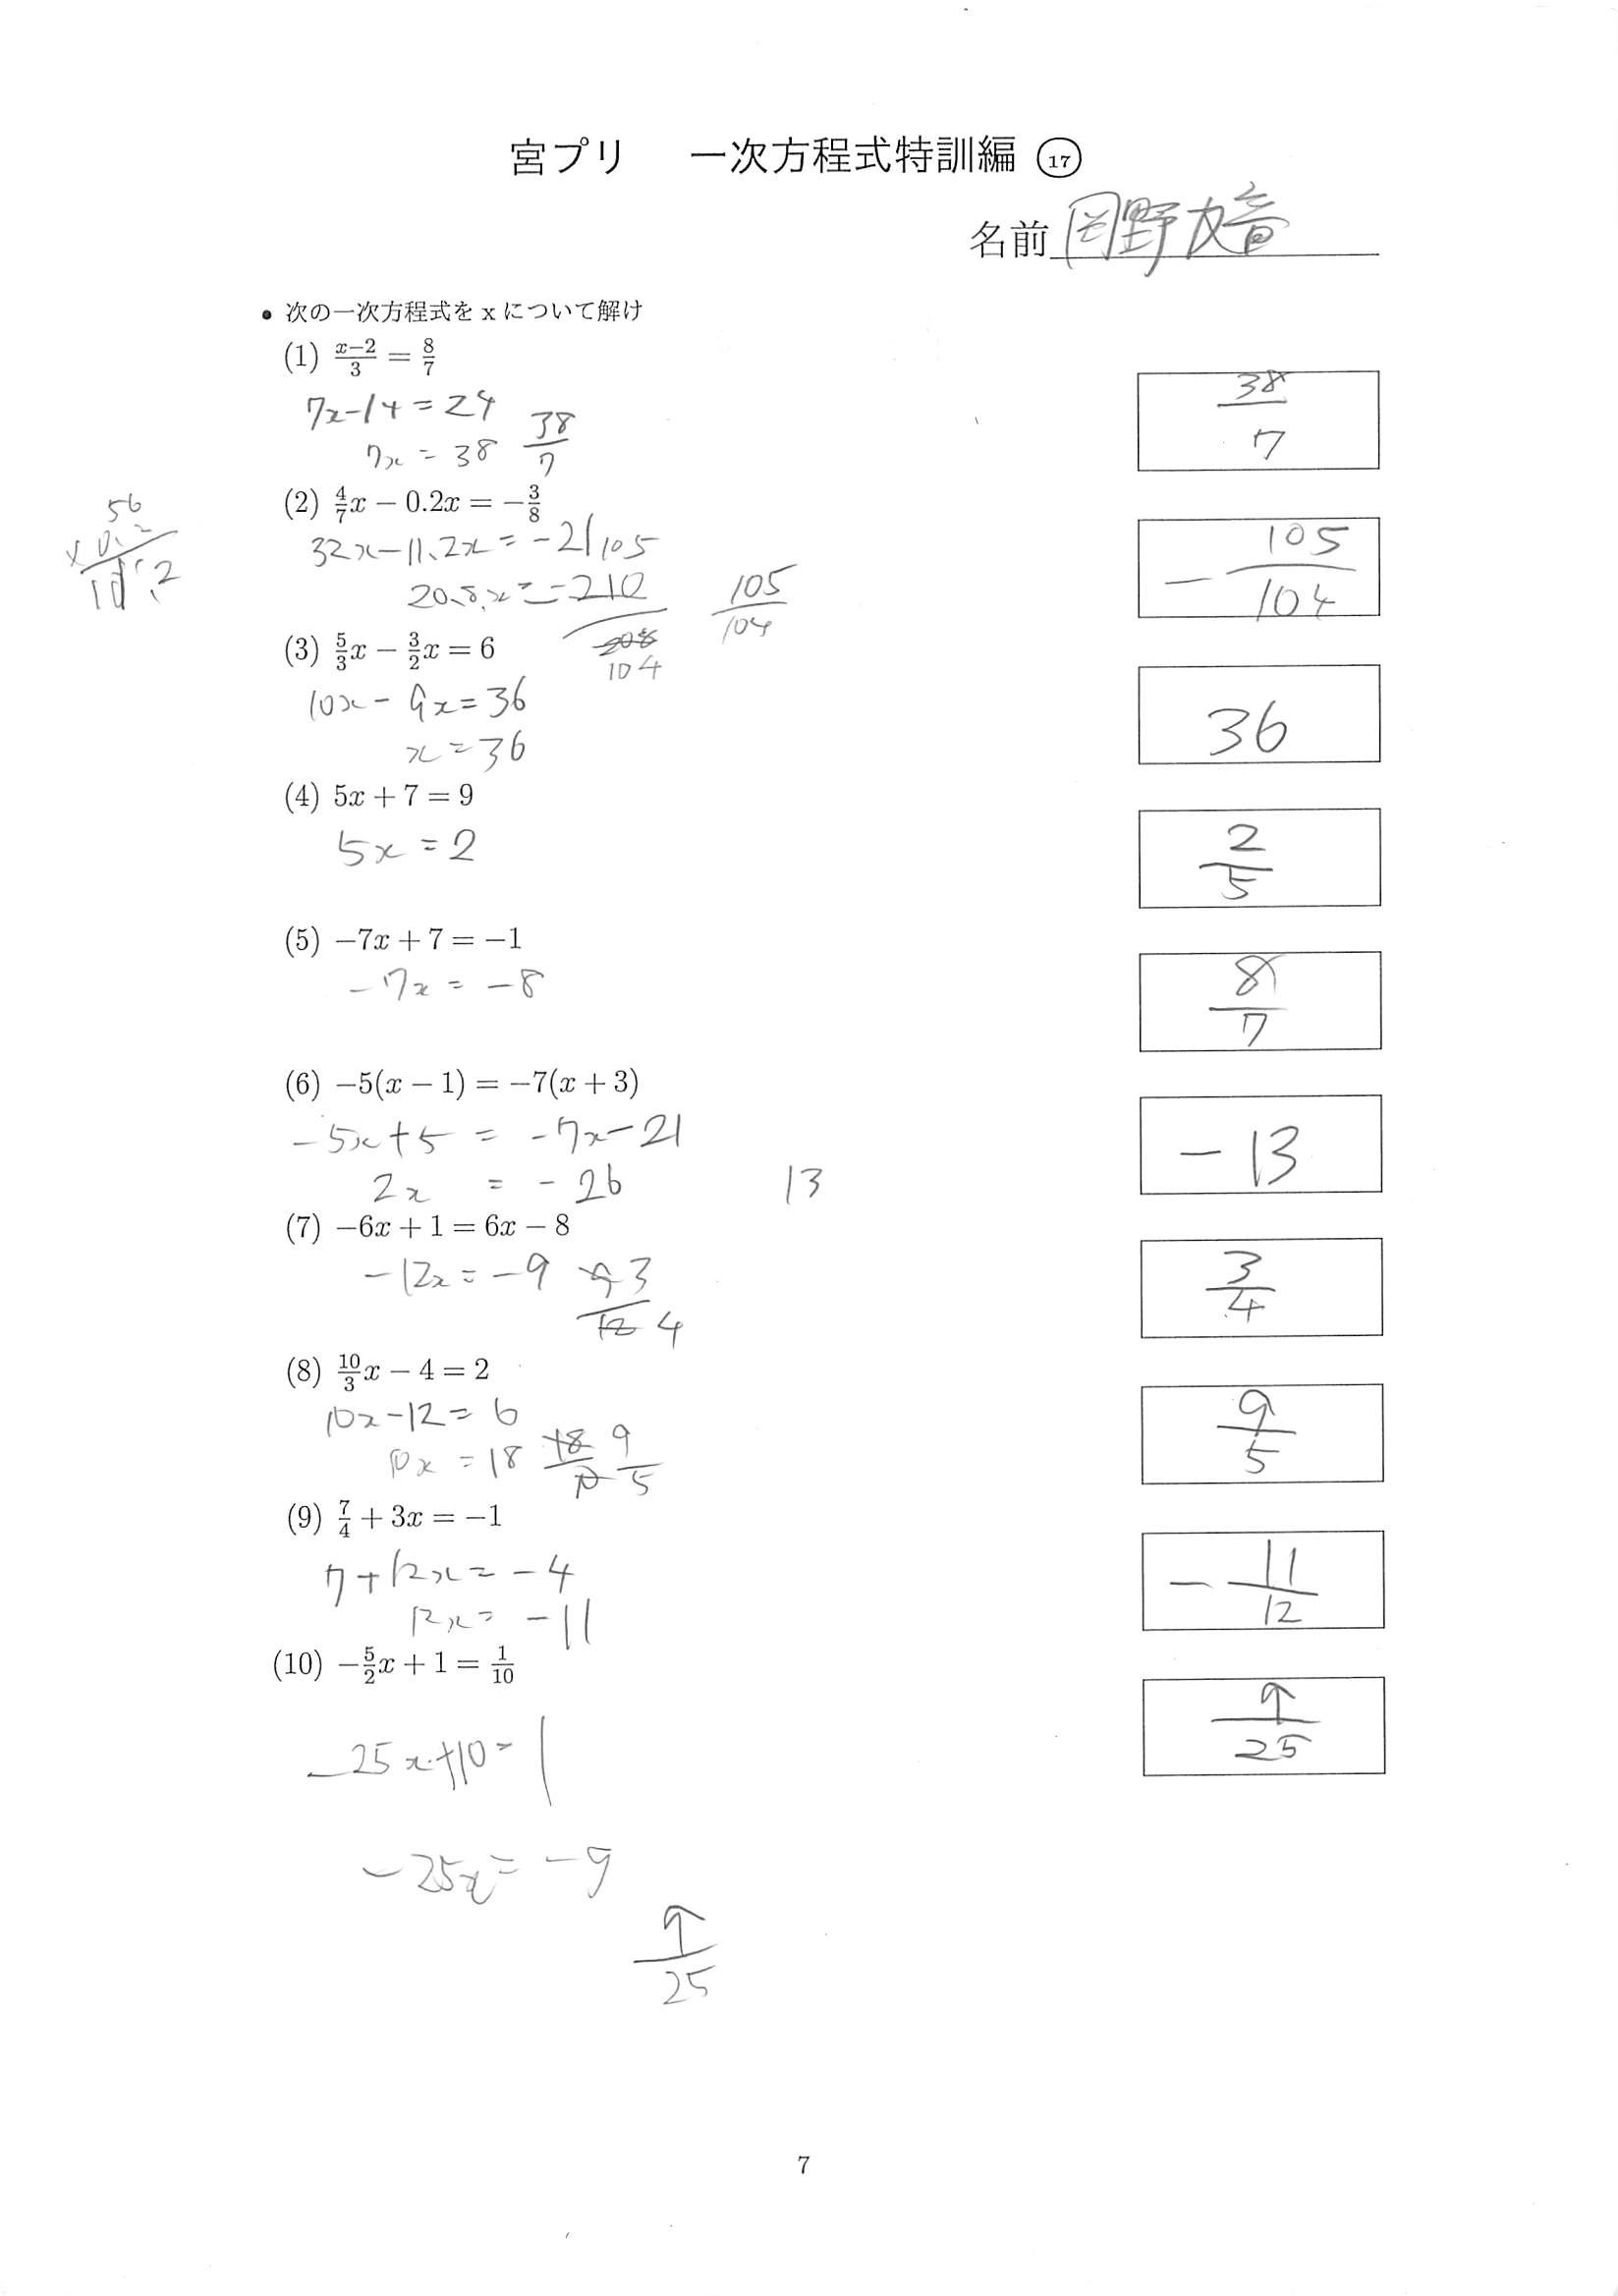 宮プリ 一次方程式特訓編 ⑰
名前 岡野友音
• 次の一次方程式を x について解け
(1) \frac{x-2}{3} = \frac{8}{7}
7x-14 = 24
7x = 38 \frac{38}{7}
\frac{38}{7}
(2) \frac{4}{7}x − 0.2x = −\frac{3}{8}
56
×0.2
11.2
32x-11.2x = -21 105
20.8x = -210
208
104
\frac{105}{104}
-\frac{105}{104}
(3) \frac{5}{3}x − \frac{3}{2}x = 6
10x - 9x = 36
x = 36
36
(4) 5x + 7 = 9
5x = 2
\frac{2}{5}
(5) −7x + 7 = −1
-7x = -8
\frac{8}{7}
(6) −5(x − 1) = −7(x + 3)
-5x+5 = -7x-21
2x = -26 13
-13
(7) −6x + 1 = 6x − 8
-12x = -9 \frac{9}{12} \frac{3}{4}
\frac{3}{4}
(8) \frac{10}{3}x − 4 = 2
10x-12 = 6
10x = 18 \frac{18}{10} \frac{9}{5}
\frac{9}{5}
(9) \frac{7}{4} + 3x = −1
7+12x = -4
12x = -11
-\frac{11}{12}
(10) −\frac{5}{2}x + 1 = \frac{1}{10}
-25x+10 = 1
-25x = -9
\frac{9}{25}
\frac{9}{25}
7